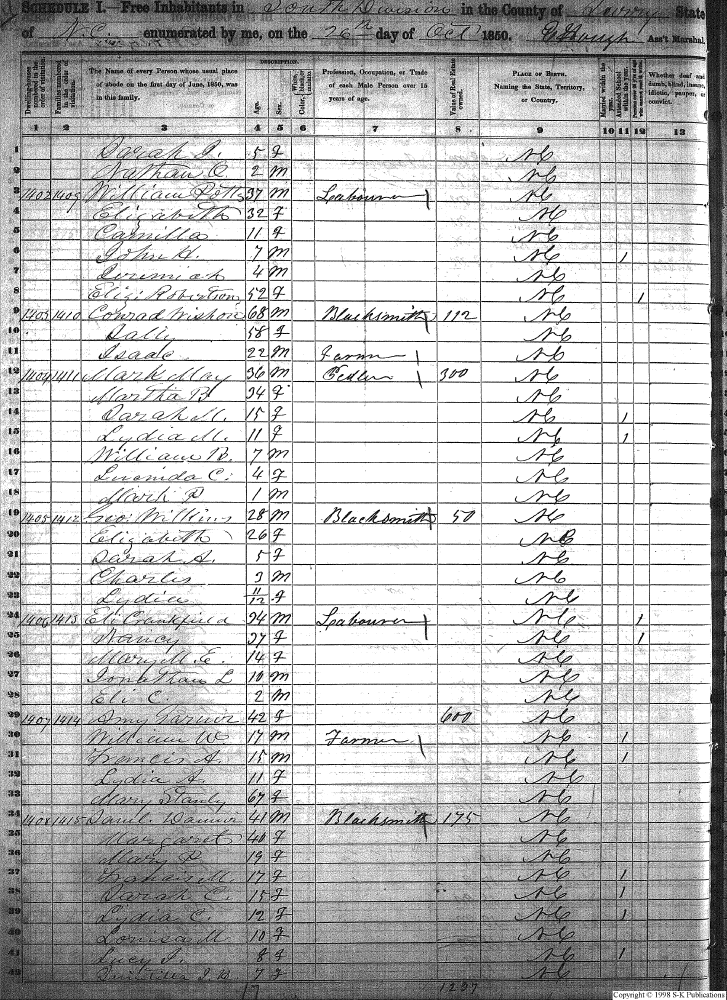 SCHEDULE I.—Free Inhabitants in South Division in the County of State
of N.C. enumerated by me, on the 26th day of Oct 1850. Ass't Marshal.
DESCRIPTION.
Dwelling-houses numbered in the order of visitation.
Families numbered in the order of visitation.
The Name of every Person whose usual place of abode on the first day of June, 1850, was in this family.
Age.
Sex.
Profession, Occupation, or Trade of each Male Person over 15 years of age.
Value of Real Estate owned.
PLACE OF BIRTH. Naming the State, Territory, or Country.
Married within the year.
Whether deaf and dumb, blind, insane, idiotic, pauper, or convict.
1 2 3 4 5 6 7 8 9 10 11 12 13
1 Sarah J. 5 F NC
2 Nathan C. 2 M NC
3 1402 1409 William Potts 37 M Labourer NC
4 Elizabeth 32 F NC
5 Camilla 11 F NC
6 John H. 7 M NC 1
7 Jeremiah 4 M NC
8 Eliz: Robertson 52 F NC 1
9 1403 1410 Conrad 68 M Blacksmith 112 NC
10 Sally 58 F NC
11 Isaac 22 M Farmer NC
12 1404 1411 Mark May 36 M Pedler 300 NC
13 Martha B 34 F NC
14 Sarah M. 15 F NC 1
15 Lydia M. 11 F NC 1
16 William R. 7 M NC
17 Lucinda C: 4 F NC
18 Mark P 1 M NC
19 1405 1412 Geo: Wilkins 28 M Blacksmith 50 NC
20 Elizabeth 26 F NC
21 Sarah A. 5 F NC
22 Charles 3 M NC
23 Lydia 11/12 F NC
24 1406 1413 Eli 34 M Labourer NC 1
25 Nancy 37 F NC 1
26 Mary M. E. 14 F NC
27 Jonathan L 10 M NC
28 Eli C. 2 M NC
29 1407 1414 Amy 42 F 600 NC
30 William W. 17 M Farmer NC 1
31 Francis A. 15 M NC 1
32 Lydia A. 11 F NC
33 Mary Stanly 67 F NC
34 1408 1415 Danl. 41 M Blacksmith 175 NC
35 Margaret 40 F NC
36 Mary P. 19 F NC
37 Frances M. 17 F NC 1
38 Sarah E. 15 F NC 1
39 Lydia C. 12 F NC 1
40 Louisa M 10 F NC
41 Lucy J. 8 F NC 1
42 7 F NC
17 1237
Copyright © 1998 S-K Publications